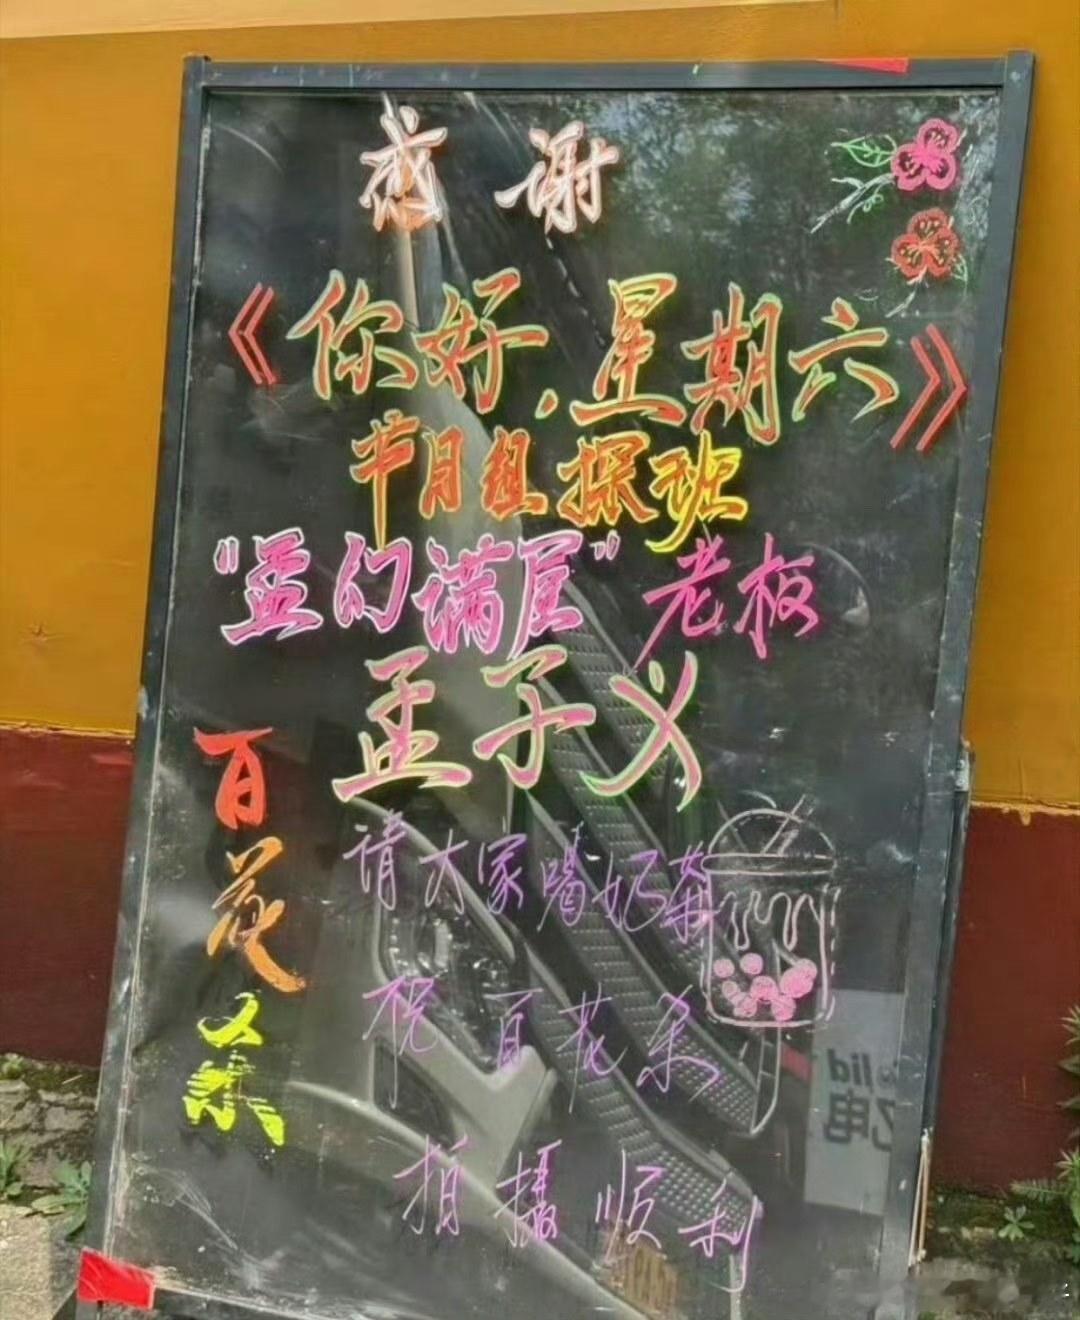 感谢
《你好.星期六》
节目组探班
“孟幻满屋”老板
孟子义
请大家喝奶茶
祝百花杀
拍摄顺利
百花杀